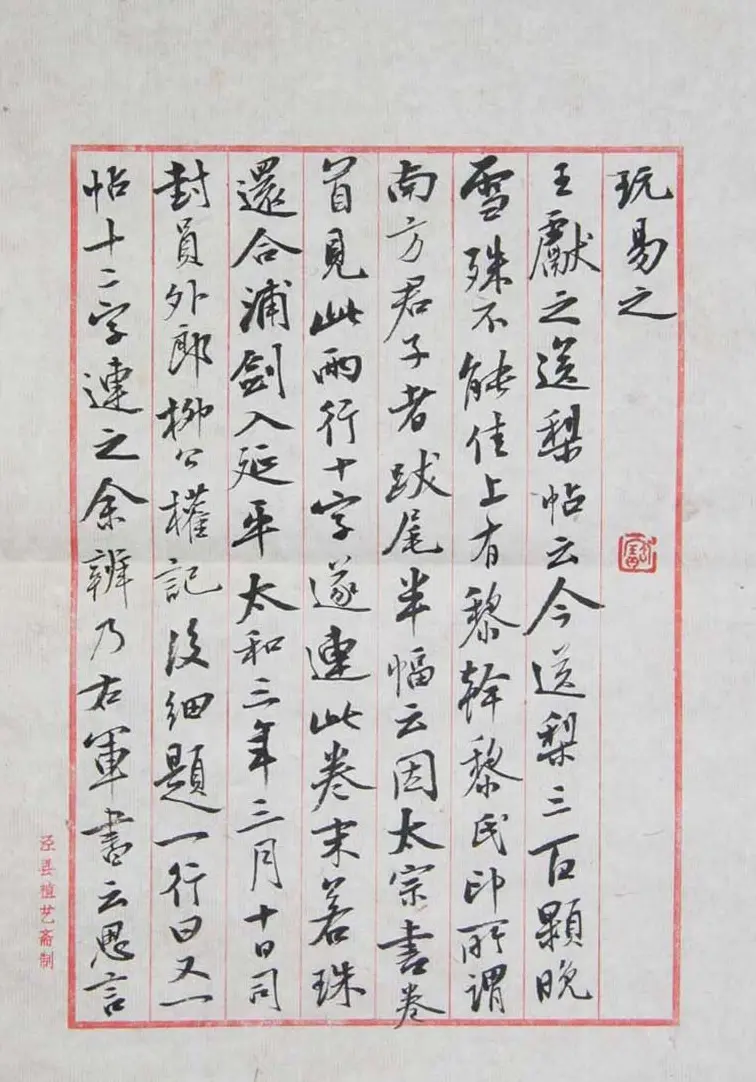 玩易之
王獻之送梨帖云今送梨三百顆晚
雪殊不能佳上有黎幹黎氏印所謂
南方君子者跋尾半幅云因太宗書卷
首見此兩行十字遂連此卷末若珠
還合浦劍入延平太和三年三月十日司
封員外郎柳公權記後細題一行曰又一
帖十二字連之余辨乃右軍書云思言
泾县植艺斋制